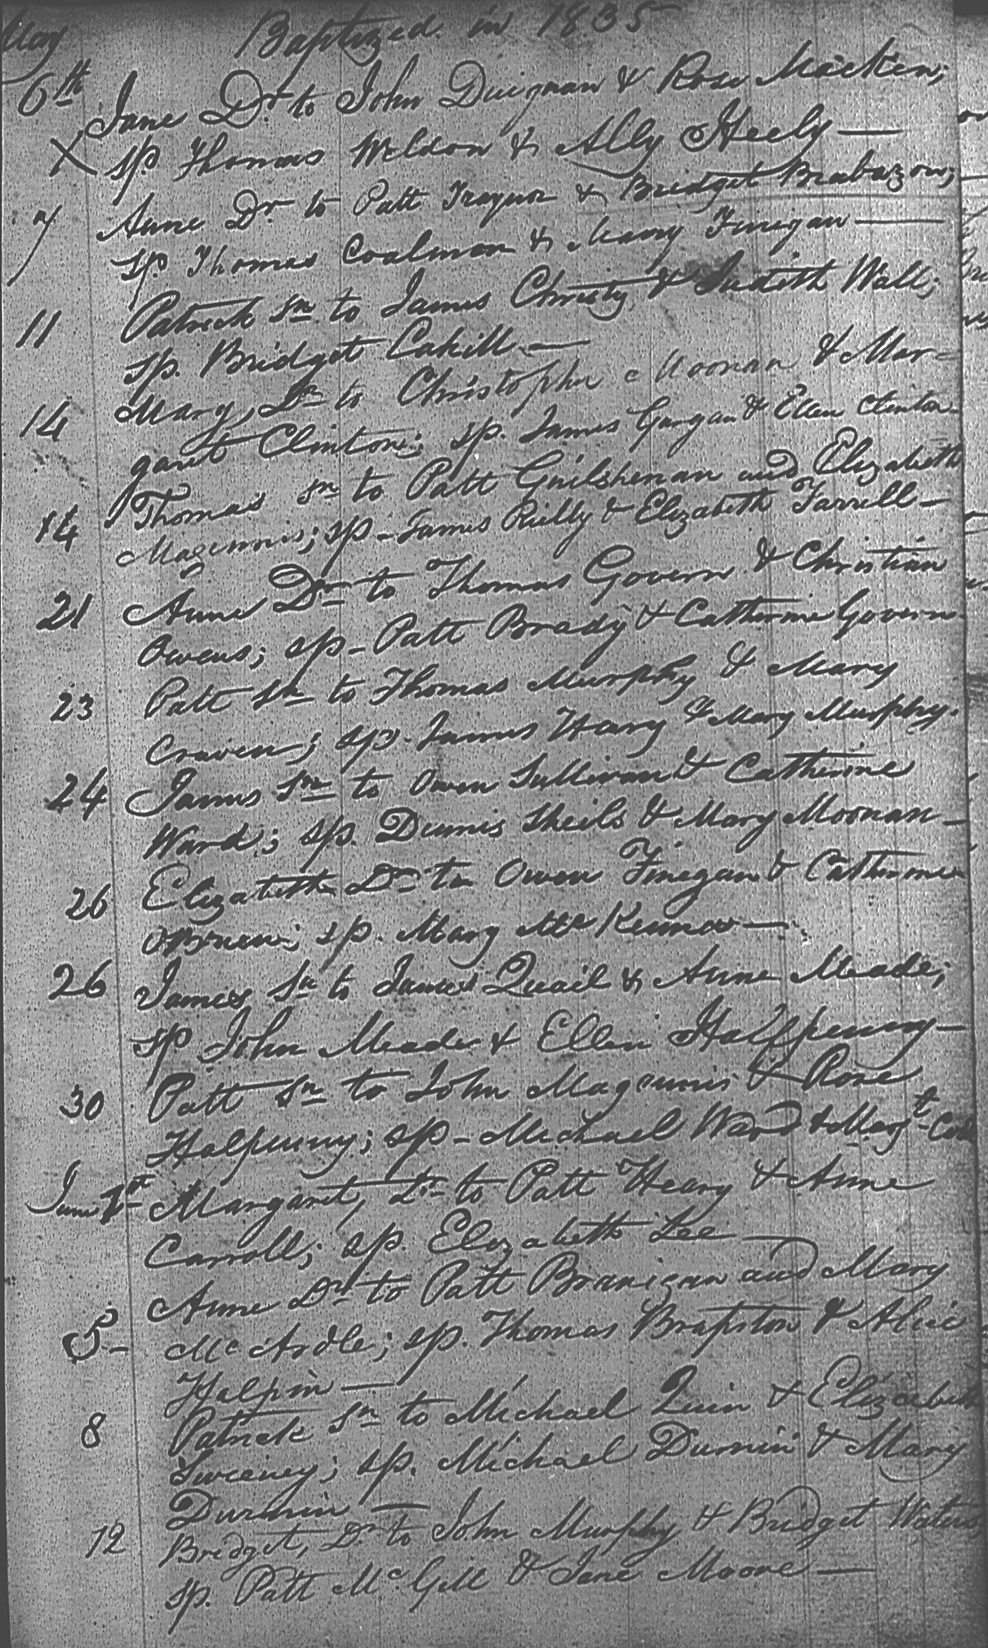 May Baptized in 1835
6th Jane Dr to John Duignan & Rose Macken;
X sp Thomas Weldon & Ally Heely —
7 Anne Dr to Patt Traynor & Bridget Brabazon;
sp Thomas Coalman & Mary Finegan —
11 Patrick sn to James Christy & Judith Wall;
sp. Bridget Cahill —
14 Mary, Dr to Christopher Moonan & Mar=
garet Clinton; sp. James Gargan & Ellen Clinton
14 Thomas sn to Patt Guilshenan and Elizabeth
Magennis; sp - James Reilly & Elizabeth Farrell -
21 Anne Dr to Thomas Govern & Christian
Owens; sp - Patt Brady & Catherine Govern
23 Patt sn to Thomas Murphy & Mary
Craven; sp. James Heary & Mary Murphy.
24 James sn to Owen Sullivan & Catherine
Ward; sp. Dennis Sheils & Mary Moonan -
26 Elizabeth Dr to Owen Finegan & Catherine
OBrien; sp. Mary Mc Kenna —
26 James sn to James Quail & Anne Meade;
sp John Meade & Ellen Halfpenny -
30 Patt sn to John Magennis & Rose
Halpenny; sp - Michael Ward & Margt
June 1st Margaret, Dr to Patt Heary & Anne
Carroll; sp. Elizabeth Lee —
5 - Anne Dr to Patt Branigan and Mary
Mc Ardle; sp. Thomas & Alice
Halpin —
8 Patrick sn to Michael Quin & Elizabeth
Sweeney; sp. Michael Durnin & Mary
Durnin —
12 Bridget, Dr to John Murphy & Bridget Waters
sp. Patt Mc Gill & Jane Moore —